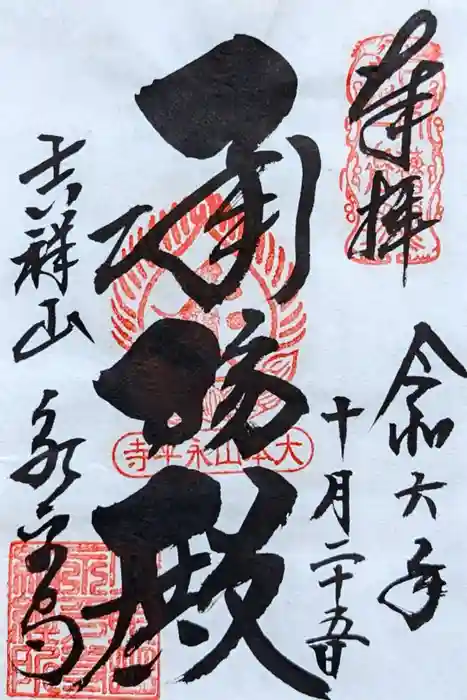 奉拝
令和六年
十月二十五日
承陽殿
大本山永平寺
吉祥山 永平寺